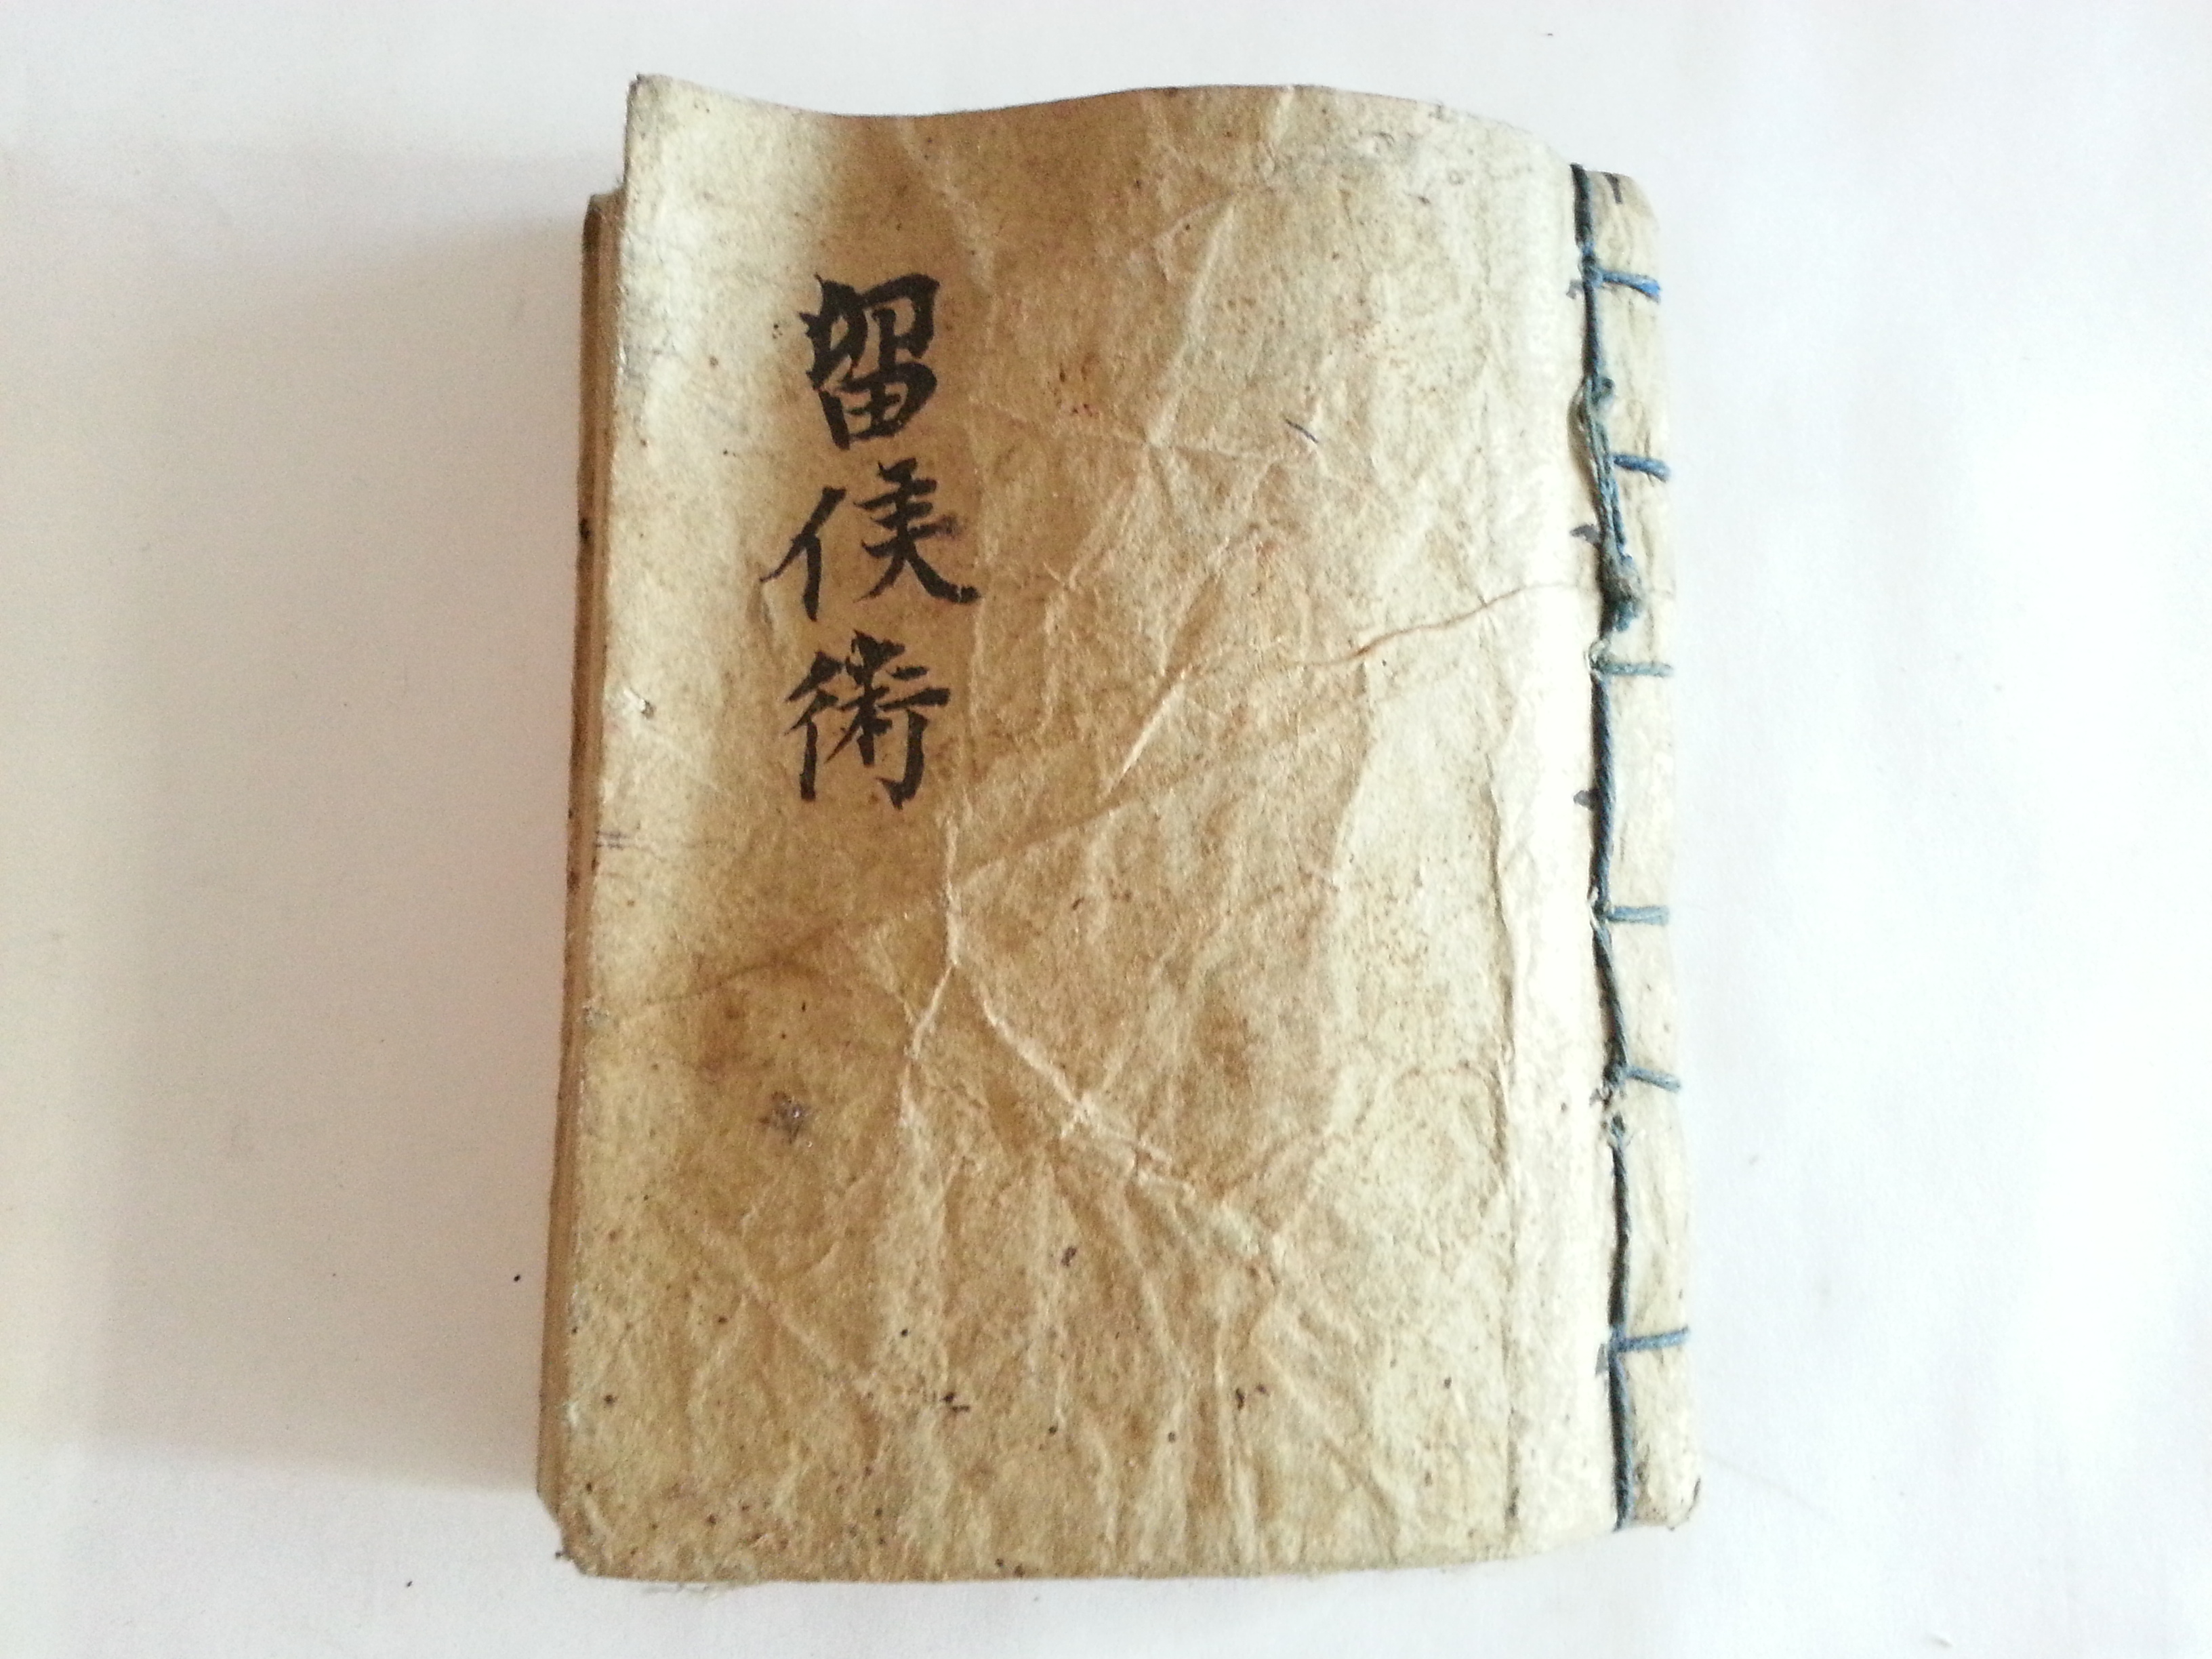 留侯術